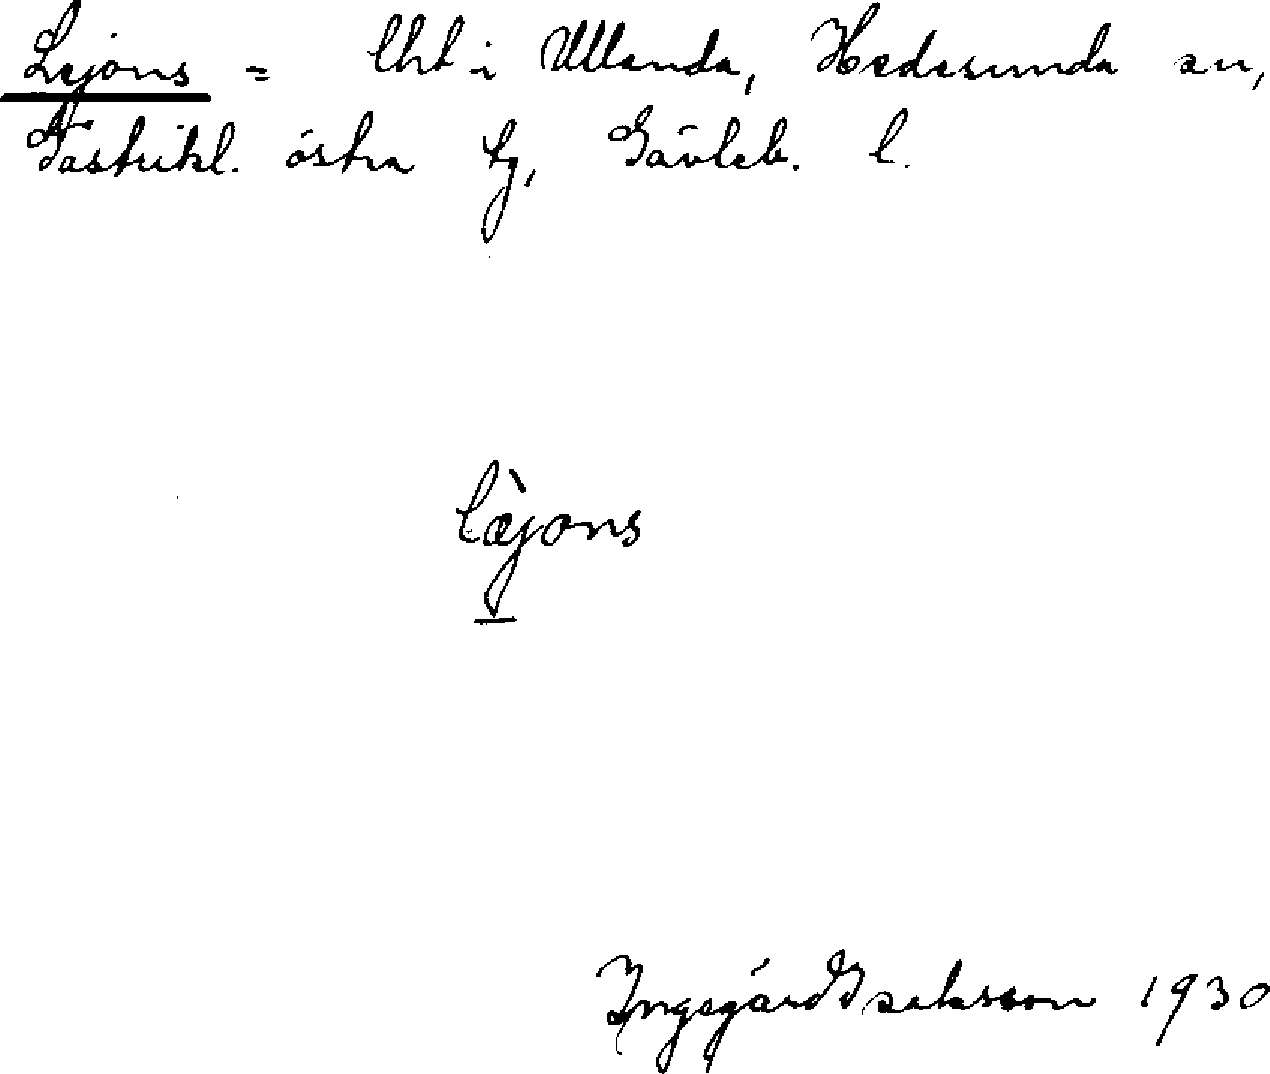 Lejons = lht i Ullanda, Hedesunda sn,
Gästrikl. östra tg, Gävleb. l.
læ̀jons
Ingegärd Isaksson 1930